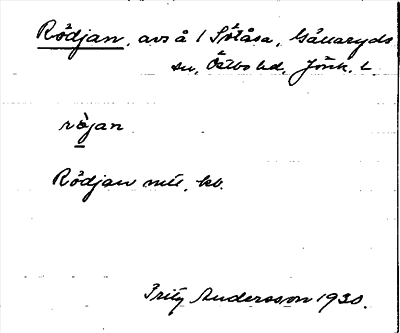 Rödjan, avs å 1 Sötåsa, Gällaryds
sn, Östbo hd, Jönk. l.
röjan
Rödjan mtl. kb.
Fritz Andersson 1930.